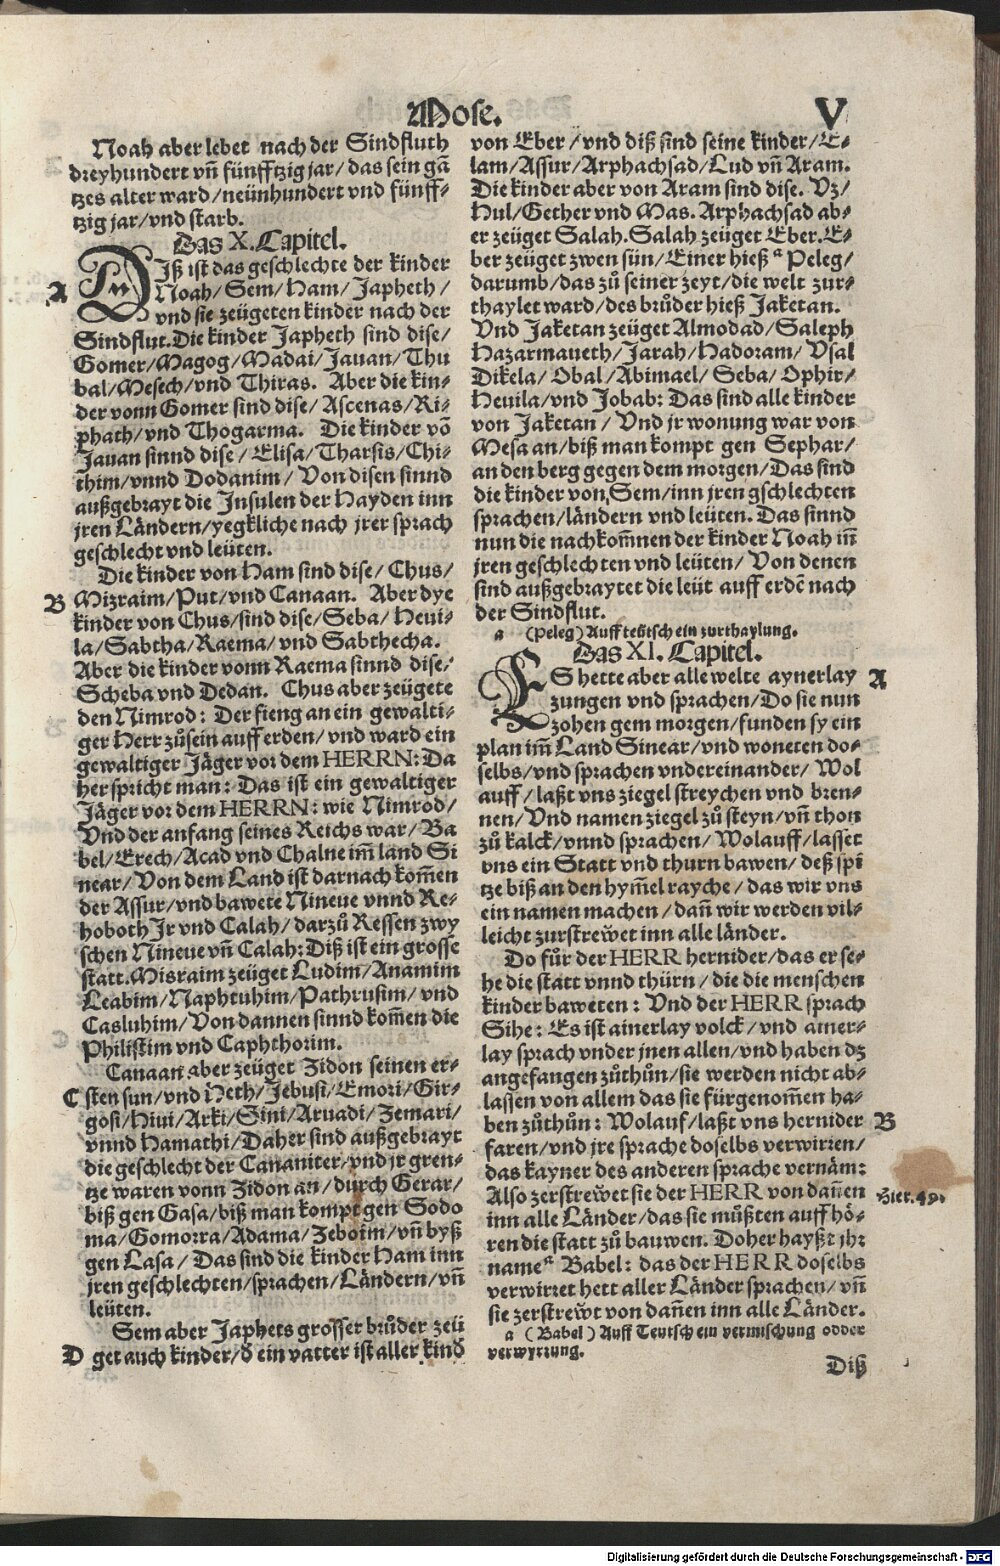 Mose. V
Noah aber lebet nach der Sindfluth
dreyhundert vñ fünfftzig jar/ das sein gã
tzes alter ward/ neünhundert vnd fünff-
tzig jar/ vnd starb.
Das X. Capitel.
A
DIß ist das geschlechte der kinder
Noah/ Sem/ Ham/ Japheth/
vnd sie zeügeten kinder nach der
Sindflut. Die kinder Japheth sind dise/
Gomer/ Magog/ Madai/ Jauan/ Thu
bal/ Mesech/ vnd Thiras. Aber die kin-
der vonn Gomer sind dise/ Ascenas/ Ri-
phath/ vnd Thogarma. Die kinder võ
Jauan sinnd dise/ Elisa/ Tharsis/ Chi-
thim/ vnnd Dodanim/ Von disen sinnd
außgebrayt die Insulen der Hayden inn
jren Ländern/ yegkliche nach jrer sprach
geschlecht vnd leüten.
Die kinder von Ham sind dise/ Chus/
B Mizraim/ Put/ vnd Canaan. Aber dye
kinder von Chus/ sind dise/ Seba/ Heui-
la/ Sabtha/ Raema/ vnd Sabthecha.
Aber die kinder vonn Raema sinnd dise/
Scheba vnd Dedan. Chus aber zeügete
den Nimrod: Der fieng an ein gewalti-
ger Herr zůsein auff erden/ vnd ward ein
gewaltiger Jäger vor dem HERRN: Da
her spricht man: Das ist ein gewaltiger
Jäger vor dem HERRN: wie Nimrod/
Vnd der anfang seines Reichs war/ Ba
bel/ Erech/ Acad vnd Chalne im̃ land Si
near/ Von dem Land ist darnach kom̃en
der Assur/ vnd bawete Nineue vnnd Re-
hoboth Jr vnd Calah/ darzů Ressen zwy
schen Nineue vñ Calah: Diß ist ein grosse
statt. Misraim zeüget Ludim/ Anamim
Leabim/ Naphtuhim/ Pathrusim/ vnd
Casluhim/ Von dannen sinnd kom̃en die
Philistim vnd Caphthorim.
Canaan aber zeüget Zidon seinen er-
C sten sun/ vnd Heth/ Jebusi/ Emori/ Gir-
gosi/ Hiui/ Arki/ Sini/ Aruadi/ Zemari/
vnnd Hamathi/ Daher sind außgebrayt
die geschlecht der Cananiter/ vnd jr gren-
tze waren vonn Zidon an/ durch Gerar/
biß gen Gasa/ biß man kompt gen Sodo
ma/ Gomorra/ Adama/ Zeboim/ vñ byß
gen Lasa/ Das sind die kinder Ham inn
jren geschlechten/ sprachen/ Ländern/ vñ
leüten.
Sem aber Japhets grosser brůder zeü
D get auch kinder/ d̃ ein vatter ist aller kind
von Eber/ vnd diß sind seine kinder/ E-
lam/ Assur/ Arphachsad/ Lud vñ Aram.
Die kinder aber von Aram sind dise. Vz/
Hul/ Gether vnd Mas. Arphachsad ab-
er zeüget Salah. Salah zeüget Eber. E-
ber zeüget zwen sün/ Einer hieß a Peleg/
darumb/ das zů seiner zeyt/ die welt zur-
thaylet ward/ des brůder hieß Jaketan.
Vnd Jaketan zeüget Almodad/ Saleph
Hazarmaueth/ Jarah/ Hadoram/ Vsal
Dikela/ Obal/ Abimael/ Seba/ Ophir/
Heuila/ vnd Jobab: Das sind alle kinder
von Jaketan/ Vnd jr wonung war von
Mesa an/ biß man kompt gen Sephar/
an den berg gegen dem morgen/ Das sind
die kinder von Sem/ inn jren gschlechten
sprachen/ ländern vnd leüten. Das sinnd
nun die nachkom̃nen der kinder Noah iñ
jren geschlechten vnd leüten/ Von denen
sind außgebraytet die leüt auff erdẽ nach
der Sindflut.
a (Peleg) Auff teütsch ein zurthaylung.
Das XI. Capitel.
ES hette aber alle welte aynerlay A
zungen vnd sprachen/ Do sie nun
zohen gem morgen/ funden sy ein
plan im̃ Land Sinear/ vnd woneten do-
selbs/ vnd sprachen vndereinander/ Wol
auff/ laßt vns ziegel streychen vnd bren-
nen/ Vnd namen ziegel zů steyn/ vñ thon
zů kalck/ vnnd sprachen/ Wolauff/ lasset
vns ein Statt vnd thurn bawen/ deß spi
tze biß an den hym̃el rayche/ das wir vns
ein namen machen/ dañ wir werden vil-
leicht zurstrewet inn alle länder.
Do für der HERR hernider/ das er se-
he die statt vnnd thürn/ die die menschen
kinder baweten: Vnd der HERR sprach
Sihe: Es ist ainerlay volck/ vnd ainer-
lay sprach vnder jnen allen/ vnd haben dz
angefangen zůthůn/ sie werden nicht ab-
lassen von allem das sie fürgenom̃en ha-
ben zůthůn: Wolauf/ laßt vns hernider B
faren/ vnd jre sprache doselbs verwirren/
das kayner des anderen sprache vernäm:
Also zerstrewet sie der HERR von dañen
Hier.49.
inn alle Länder/ das sie můßten auff hö-
ren die statt zů bauwen. Doher hayßt jhr
name a Babel: das der HERR doselbs
verwirret hett aller Länder sprachen/ vñ
sie zerstrewt von dañen inn alle Länder.
a (Babel) Auff Teutsch ein vermischung odder
verwyrrung.
Diß
Digitalisierung gefördert durch die Deutsche Forschungsgemeinschaft - DFG